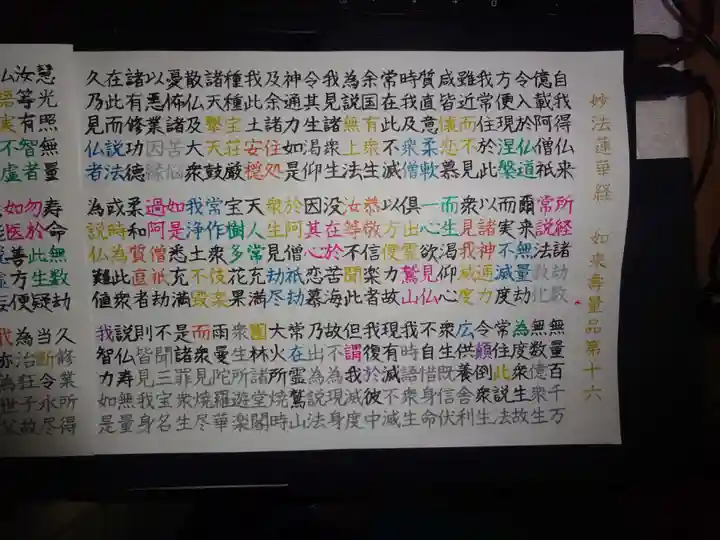 妙法蓮華経 如来壽量品第十六
自我得仏来 所経諸劫数 無量百千万
億載阿僧祇 常説法教化 無数億衆生
令入於仏道 爾来無量劫 為度衆生故
方便現涅槃 而実不滅度 常住此説法
我常住於此 以諸神通力 令顛倒衆生
雖近而不見 衆見我滅度 広供養舎利
咸皆懐恋慕 而生渇仰心 衆生既信伏
質直意柔軟 一心欲見仏 不自惜身命
時我及衆僧 倶出霊鷲山 我時語衆生
常在此不滅 以方便力故 現有滅不滅
余国有衆生 恭敬信楽者 我復於彼中
為説無上法 汝等不聞此 但謂我滅度
我見諸衆生 没在於苦海 故不為現身
令其生渇仰 因其心恋慕 乃出為説法
神通力如是 於阿僧祇劫 常在霊鷲山
及余諸住処 衆生見劫尽 大火所焼時
我此土安穏 天人常充満 園林諸堂閣
種種宝荘厳 宝樹多花果 衆生所遊楽
諸天撃天鼓 常作衆伎楽 雨曼陀羅華
散仏及大衆 我浄土不毀 而衆見焼尽
憂怖諸苦悩 如是悉充満 是諸罪衆生
以悪業因縁 過阿僧祇劫 不聞三宝名
諸有修功徳 柔和質直者 則皆見我身
在此而説法 或時為此衆 説仏寿無量
久乃見仏者 為説仏難値 我智力如是
慧光照無量 寿命無数劫 久修業所得
汝等有智者 勿於此生疑 当断令永尽
仏語実不虚 如医善方便 為治狂子故
我亦為世父